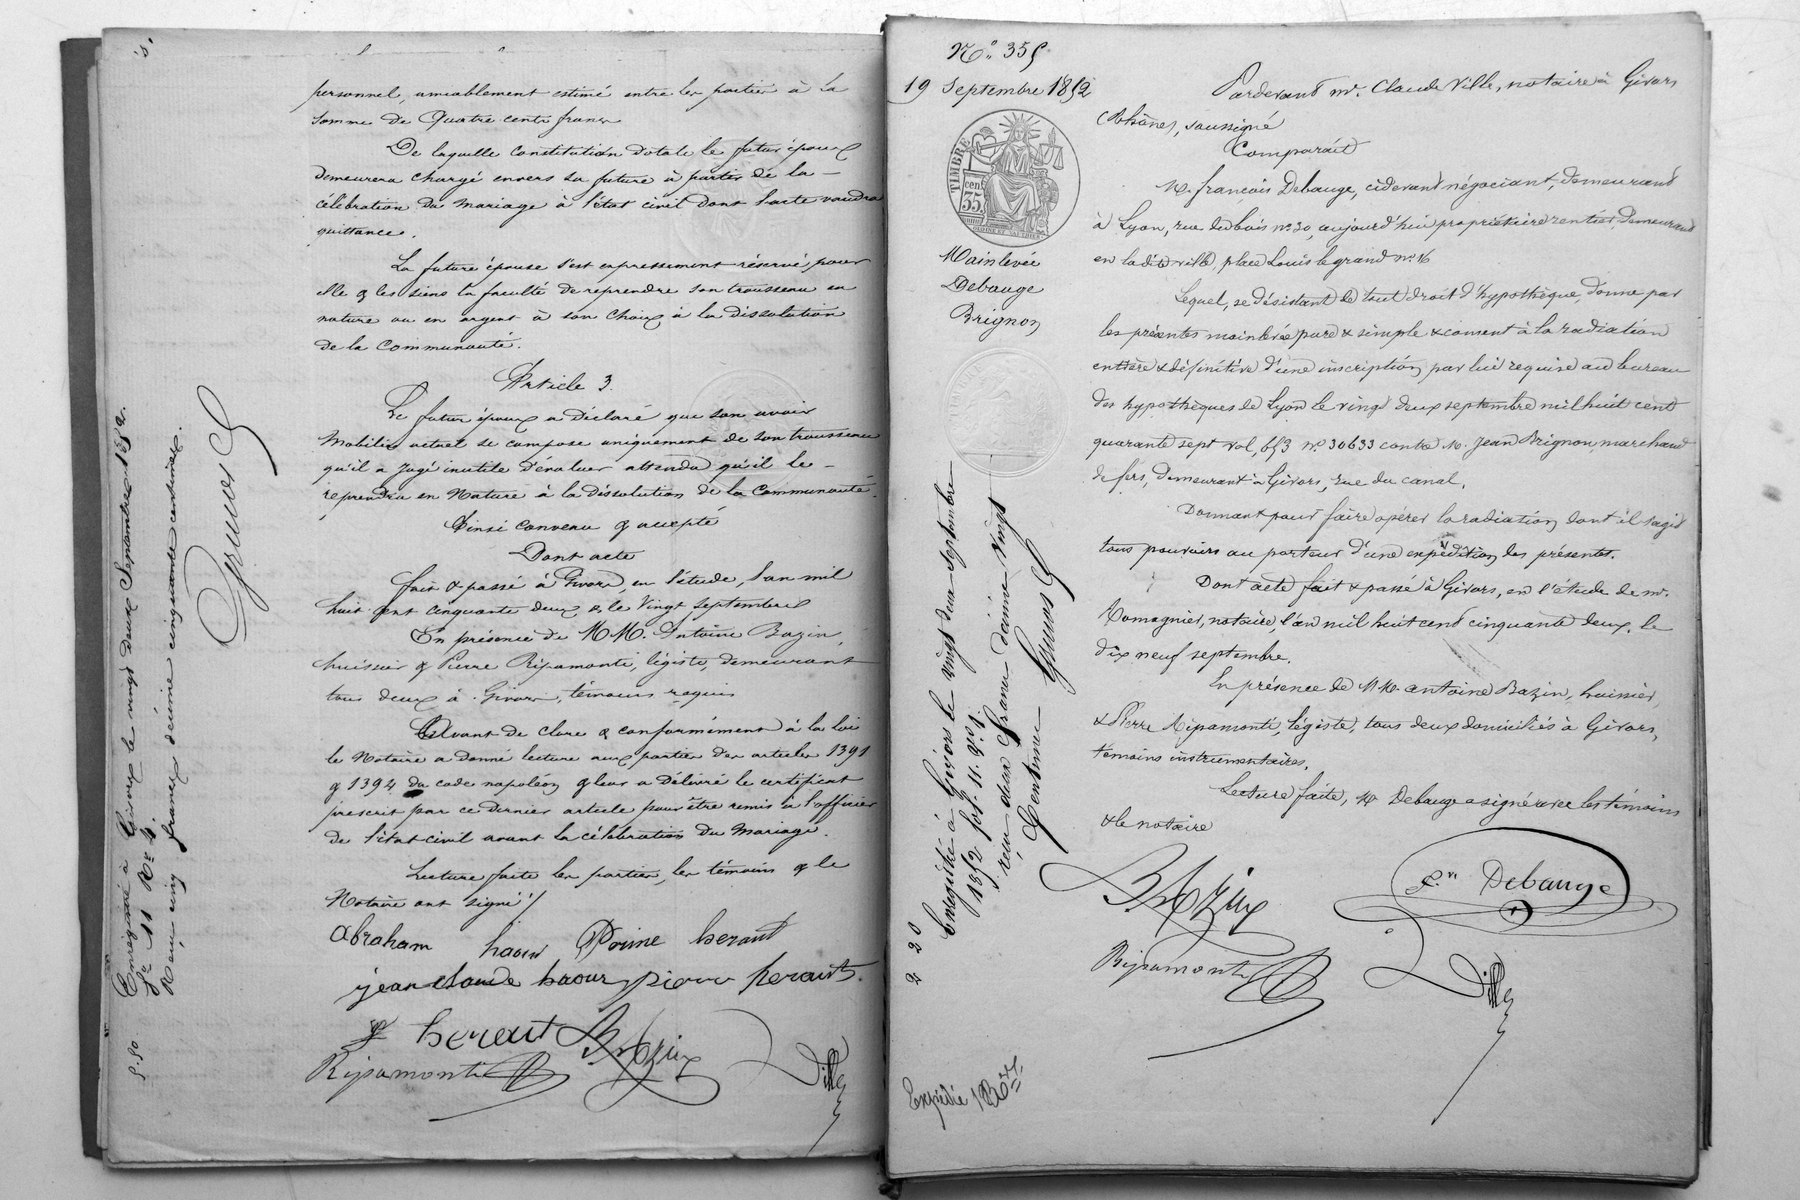 personnel, amiablement estimé entre les parties à la
somme de Quatre cents francs
De laquelle constitution dotale le futur époux
demeurera chargé envers sa future à partir de la –
célébration du mariage à l'état civil dont l'acte vaudra
quittance.
La future épouse s'est expressement réservé pour
elle & les siens la faculté de reprendre son trousseau en
nature ou en argent à son choix à la dissolution
de la Communauté.
Article 3.
Le futur époux a déclaré que son avoir
mobilier actuel se compose uniquement de son trousseau
qu'il a jugé inutile d'évaluer attendu qu'il le –
reprendra en Nature à la dissolution de la Communauté.
Ainsi convenu & accepté
Dont acte
fait & passé à Givors, en l'étude, l'an mil
huit cent cinquante deux & le vingt septembre
En présence de MM. Antoine Bazin,
huissier & Pierre Ripamonti, légiste, demeurant
tous deux à Givors, témoins requis
Avant de clore & conformément à la loi
le Notaire a donné lecture aux parties des articles 1391
& 1394 du code napoléon & leur a délivré le certificat
prescrit par ce dernier article pour être remis à l'officier
de l'état civil avant la célébration du Mariage.
Lecture faite les parties, les témoins & le
Notaire ont signé
Abraham haour Pierrine heraut
jean claude haour pierre heraut.
heraut Bazin
Ripamonti Ville
Enregistré à Givors le vingt deux Septembre 1852.
fo 11 Ro 4.
Reçu cinq francs décime cinquante centimes.
5.50
No 355
19 Septembre 1852
TIMBRE
cent
35
Mainlevée
Debauge
Brignon
Enregistré à Givors le vingt deux septembre
1852 fol. 11.
reçu deux francs décime vingt
Centimes
2 20
Expédié
Pardevant mr. Claude Ville, notaire à Givors
(Rhône), soussigné
Comparait
Mr. françois Debauge, cidevant négociant, demeurant
à Lyon, rue dubois no. 30, aujourd'hui propriétaire rentier, demeurant
en ladite ville, place Louis le grand no. 16
Lequel, se désistant de tout droit d'hypothèque, donne par
les présentes mainlevée pure & simple & consent à la radiation
entière & définitive d'une inscription par lui requise au bureau
des hypothèques de Lyon le vingt deux septembre mil huit cent
quarante sept vol. 653 no. 30633 contre M. Jean Brignon, marchand
de fers, demeurant à Givors, rue du canal.
Donnant pour faire opérer la radiation dont il s'agit
tous pouvoirs au porteur d'une expédition des présentes.
Dont acte fait & passé à Givors, en l'étude de mr.
Romagnier, notaire, l'an mil huit cent cinquante deux, le
dix neuf septembre.
En présence de MM. antoine Bazin, huissier,
& Pierre Ripamonti, légiste, tous deux domiciliés à Givors,
témoins instrumentaires.
Lecture faite, Mr Debauge a signé avec les témoins
& le notaire
Bazin
fois Debauge
Ripamonti
Ville